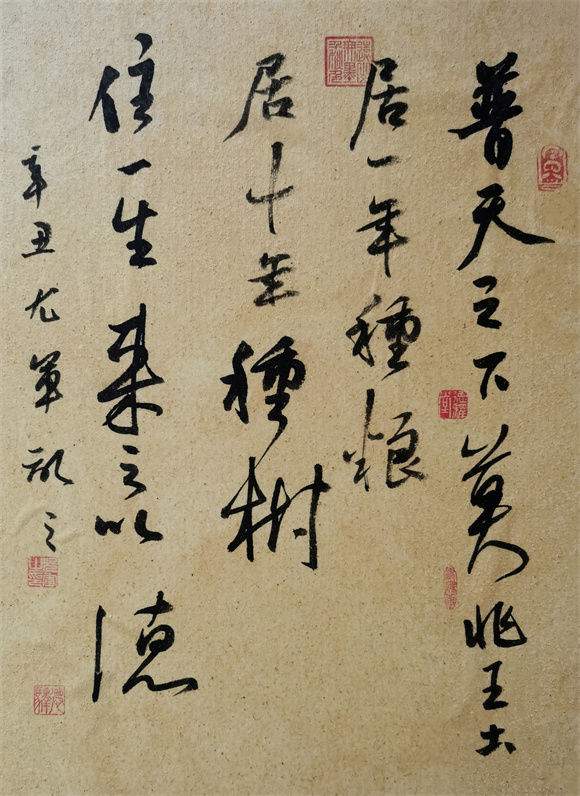 普天之下莫非王土
居一年種粮
居十年種樹
住一生来之以德
辛丑 军 之